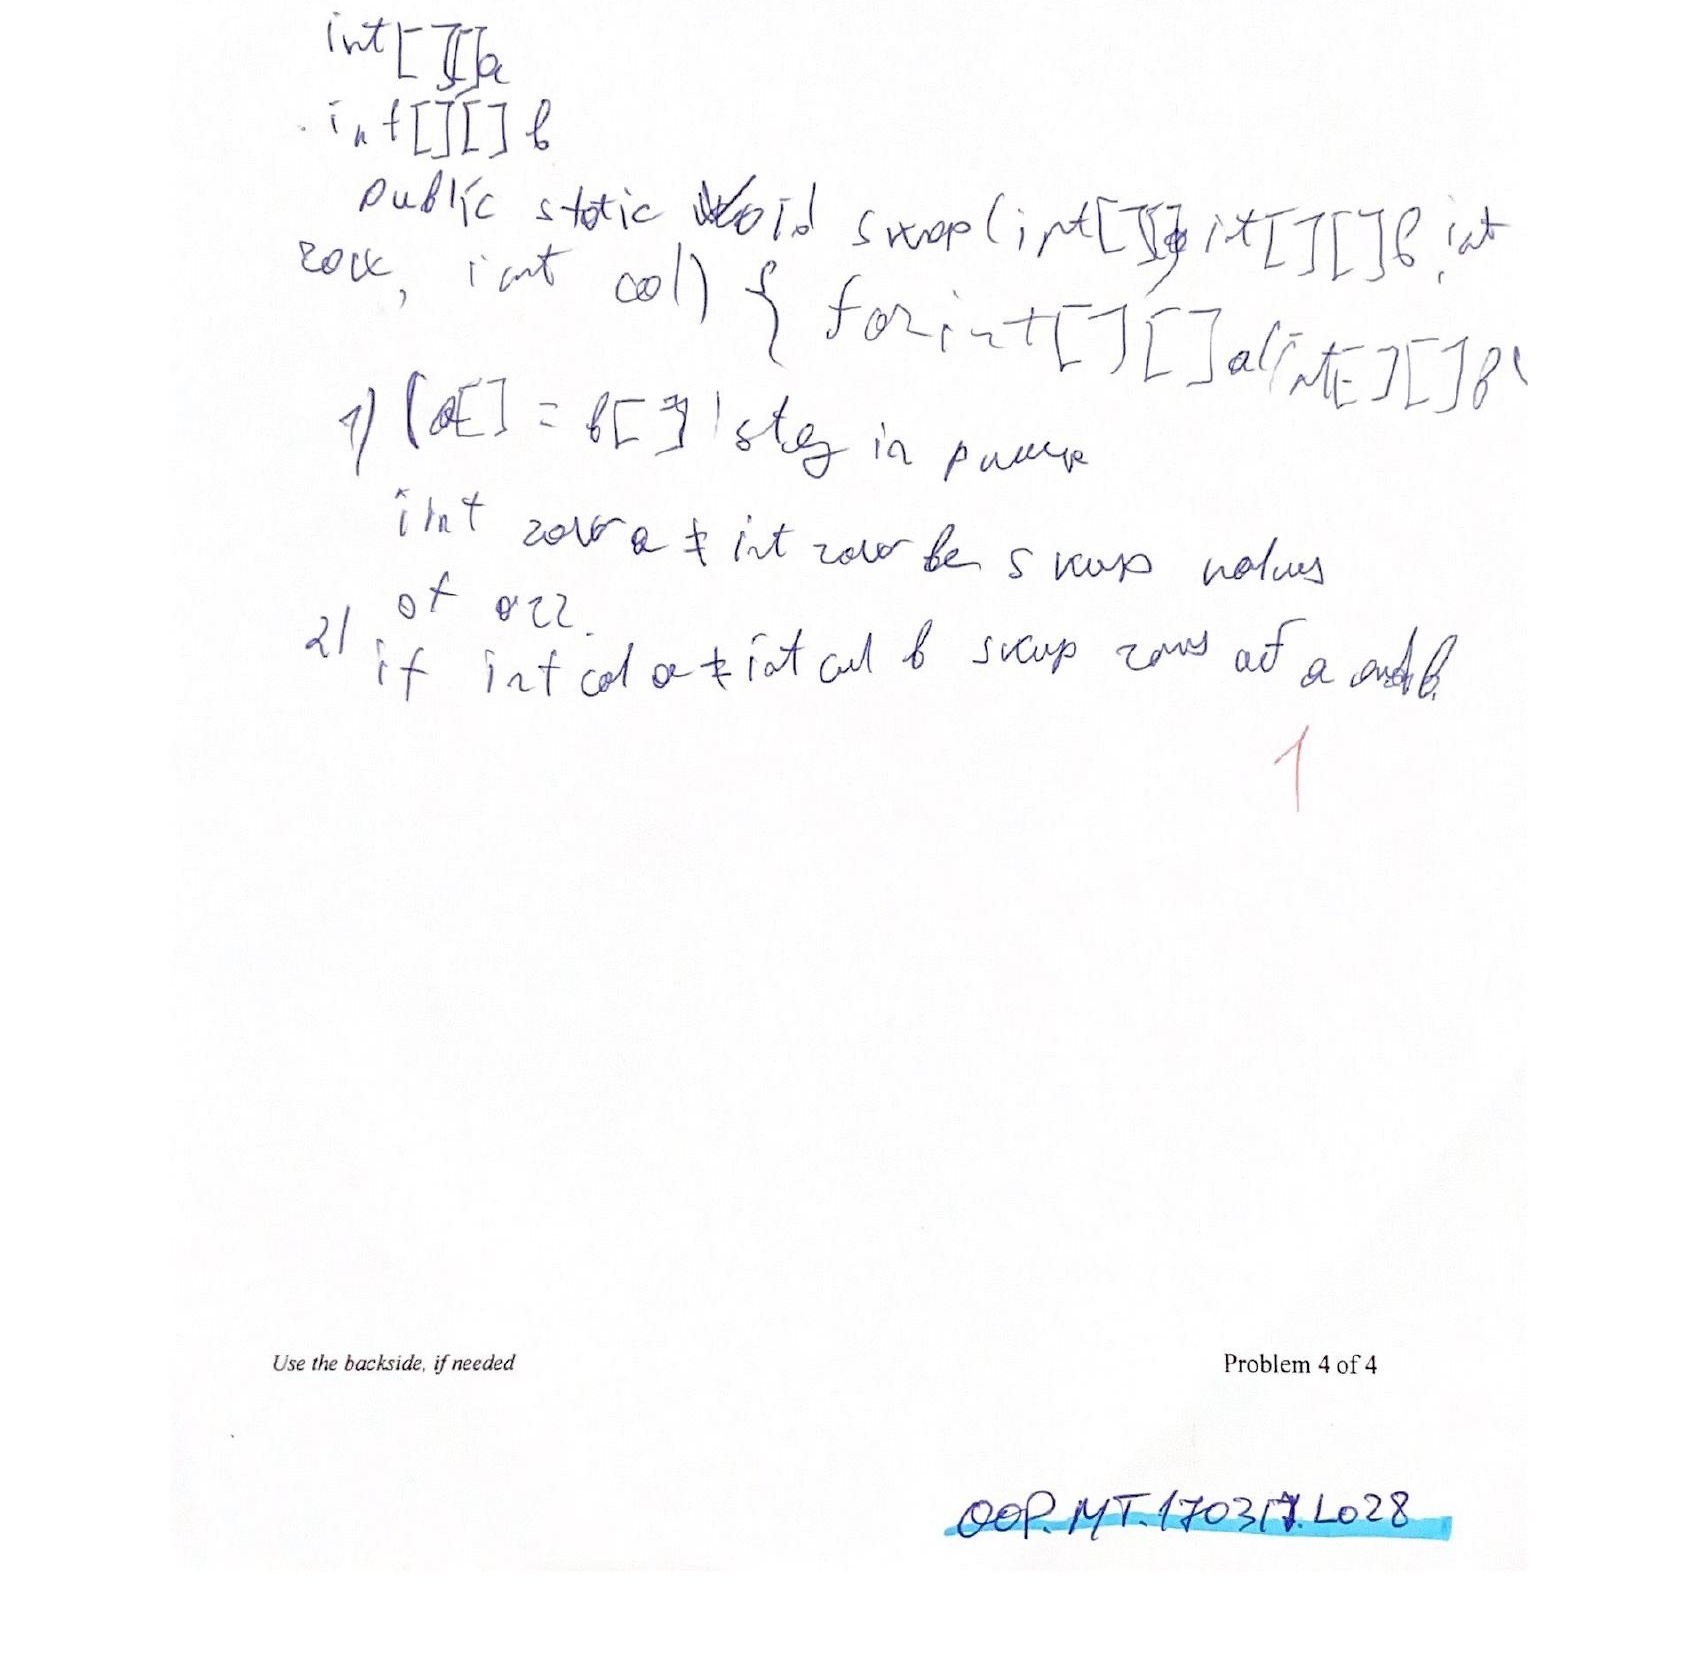 int[][]a
int[][] b
public static void swap(int[][]a, it[][]b, int
row, int col) { for int[][]a(int[][]b(
1) (a[] = b[] stay in
int row a ≠ int row be swap values
of arr.
2) if int col a ≠ int col b swap rows of a and b.
1
Use the backside, if needed
Problem 4 of 4
OOP.MT.170317.L028